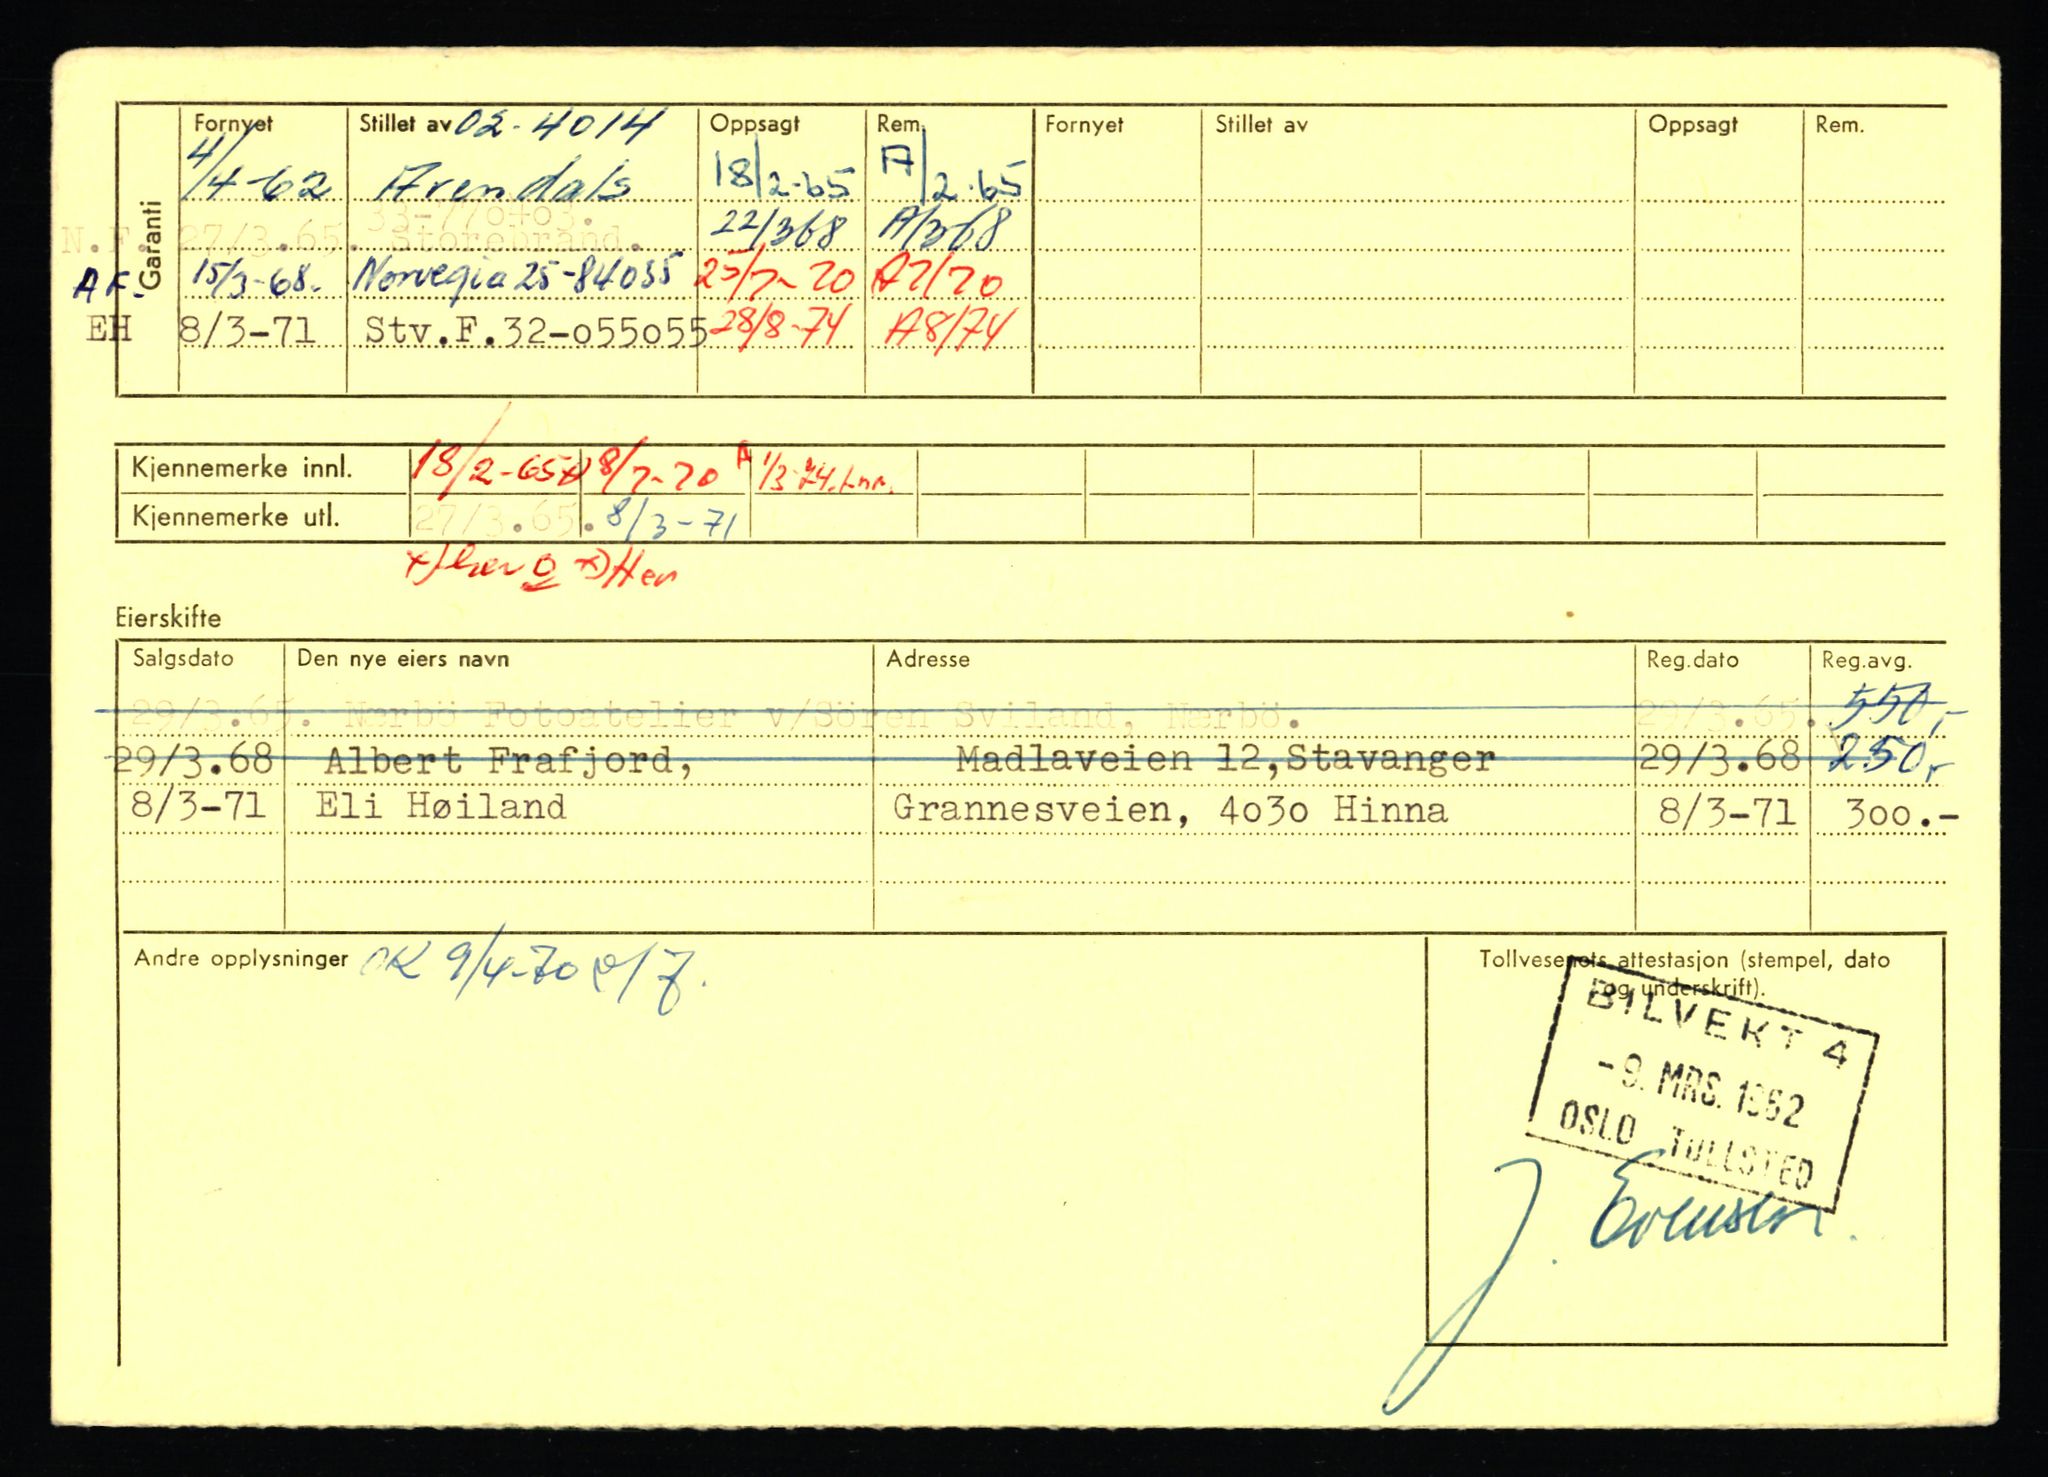 Garanti
Fornyet Stillet av 02-4014 Oppsagt Rem. Fornyet Stillet av Oppsagt Rem.
4/4-62 Arendals 18/2-65 A/2-65
33-770403.
N.F. 27/3.65. Storebrand. 22/3 68 A/3 68
AF. 15/3-68. Norvegia 25-84035 25/7-70 A7/70
EH 8/3-71 Stv.F.32-055055 28/8-74 A8/74
Kjennemerke innl. 18/2-65 x) 8/7-70 A 1/3-74.
Kjennemerke utl. 27/3.65. 8/3-71
x) her 0 x) Her
Eierskifte
Salgsdato Den nye eiers navn Adresse Reg.dato Reg.avg.
29/3.65. Nærbö Fotoatelier v/Sören Sviland, Nærbö. 29/3.65. 550,-
29/3.68 Albert Frafjord, Madlaveien 12,Stavanger 29/3.68 250,-
8/3-71 Eli Høiland Grannesveien, 4030 Hinna 8/3-71 300.-
Andre opplysninger OK 9/4-70
Tollvesenets attestasjon (stempel, dato
og underskrift).
BILVEKT 4
-9. MRS. 1962
OSLO TOLLSTED
J. Evensen.